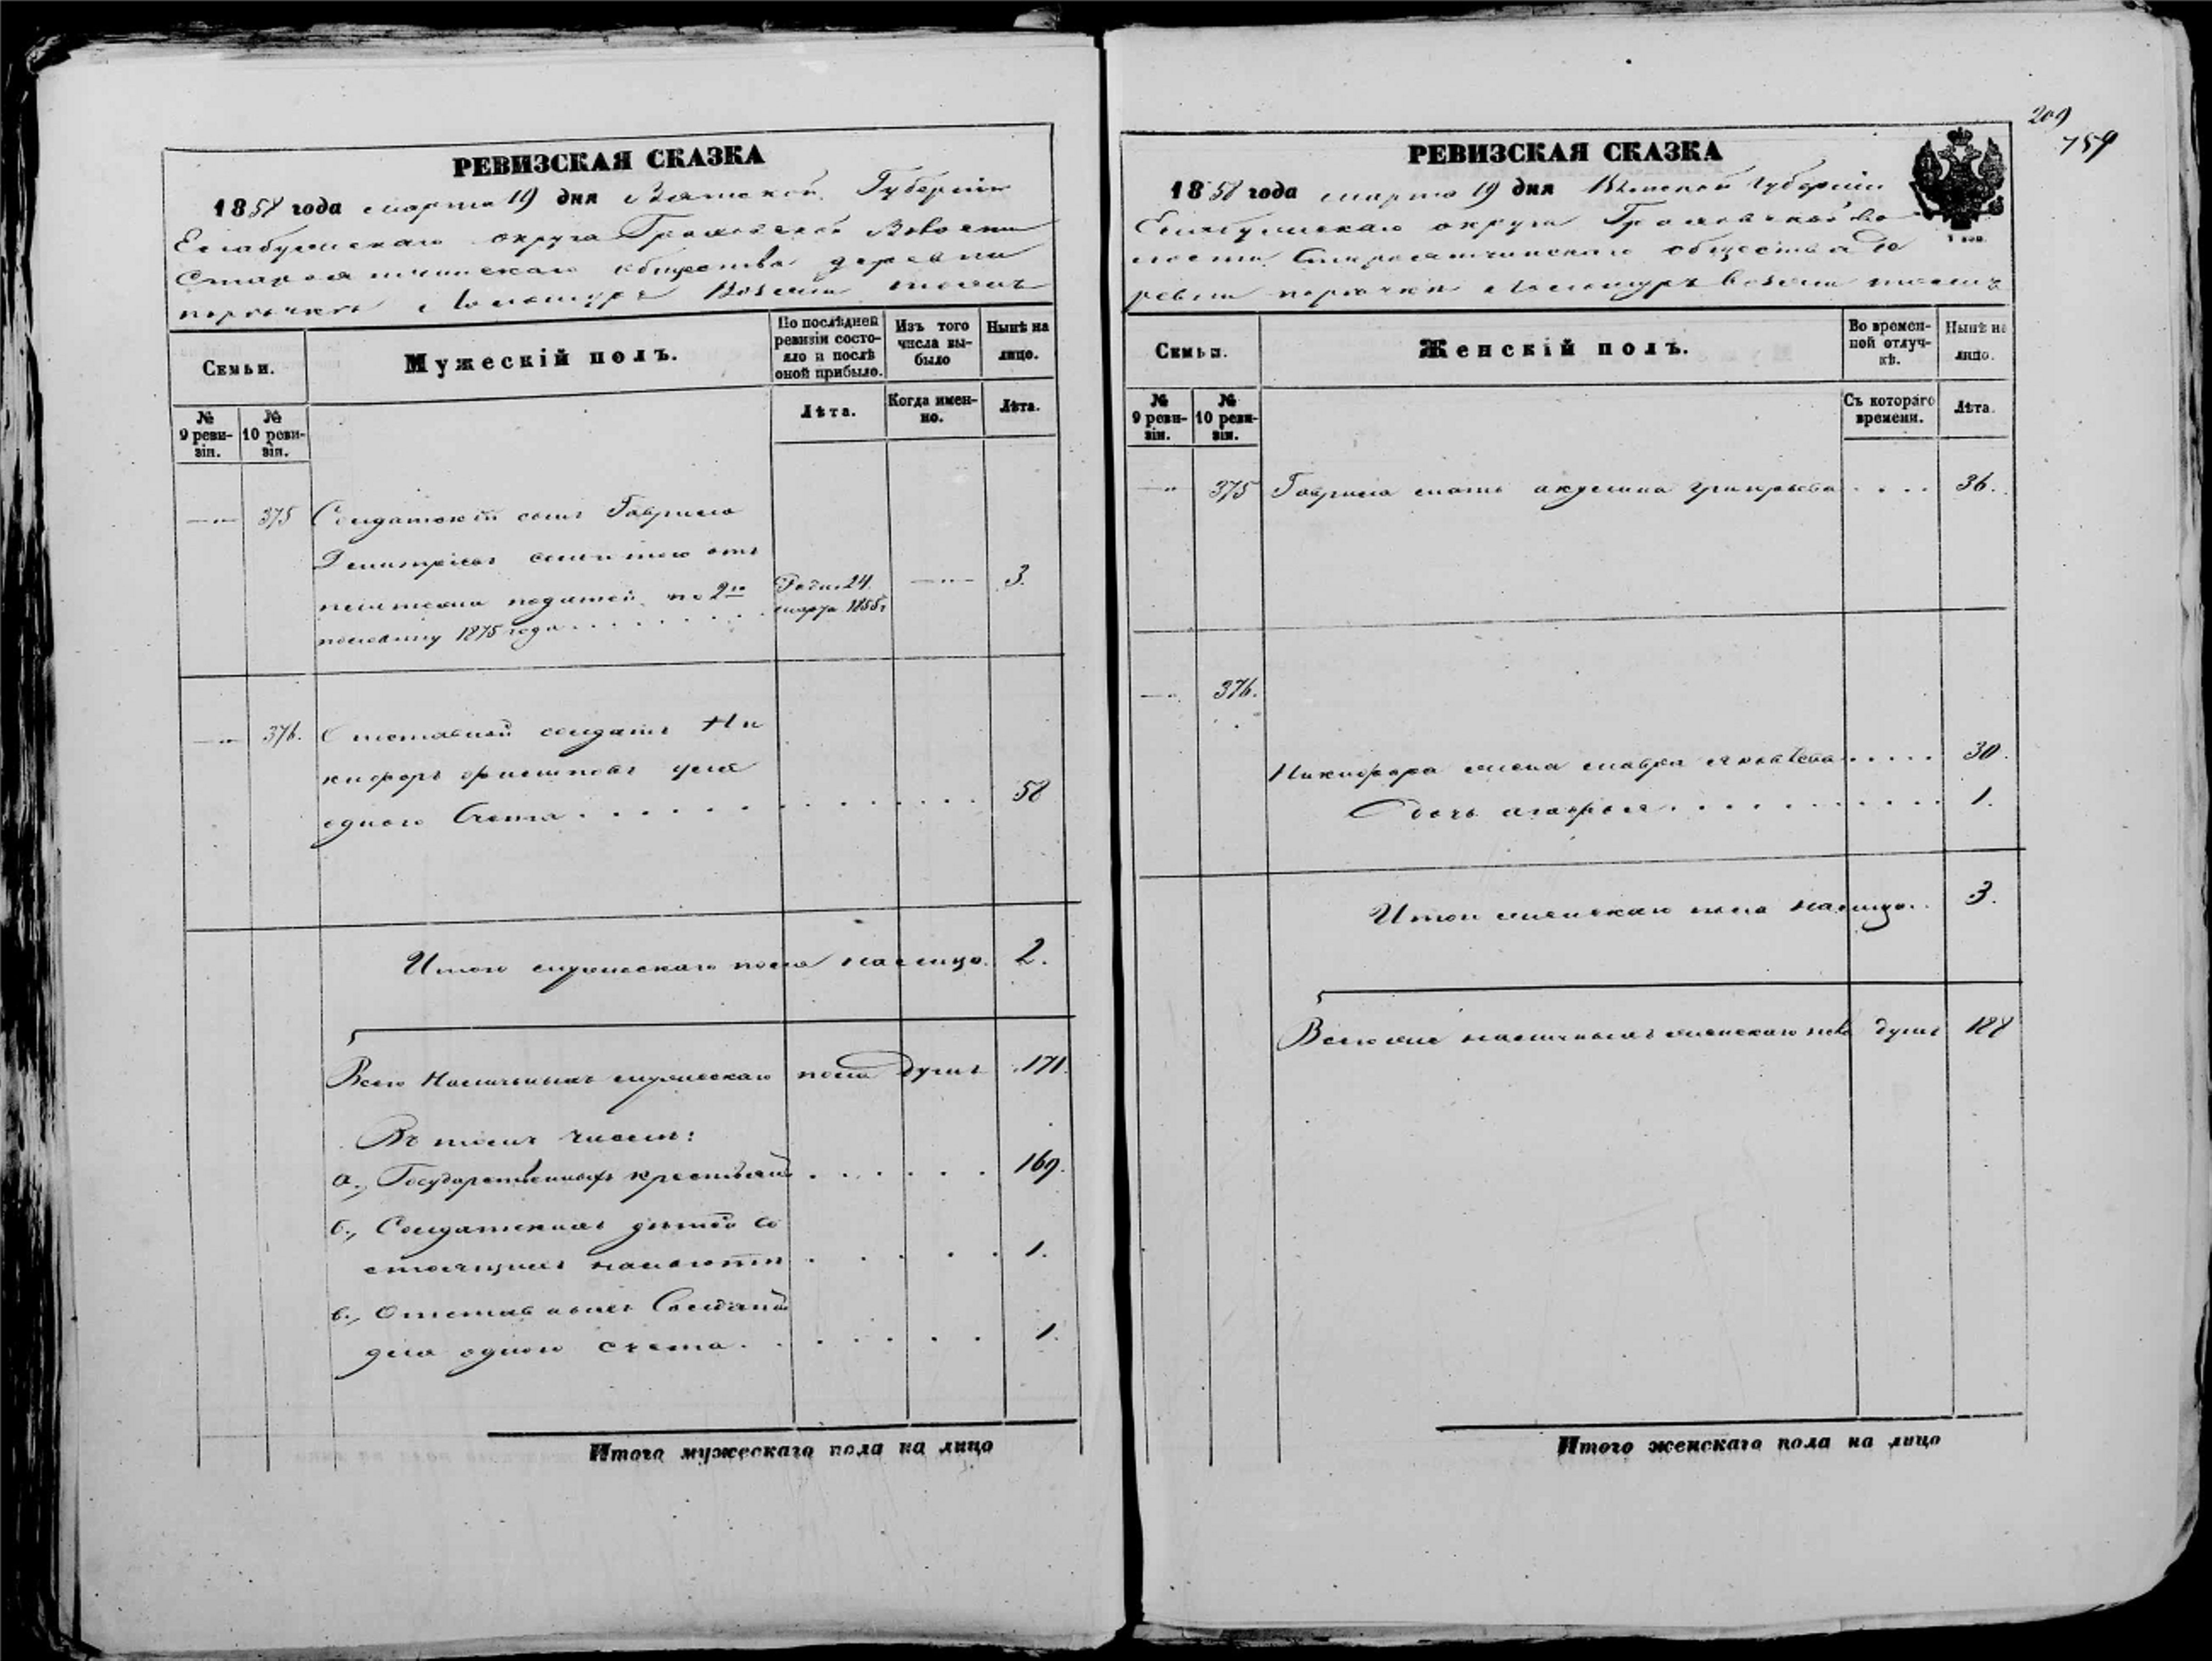 РЕВИЗСКАЯ СКАЗКА
1858 года марта 19 дня Вятской Губерніи
Елабужскаго округа Волости
общества деревни
СЕМЬИ.
Мужескій полъ.
По послѣдней ревизіи состояло и послѣ оной прибыло.
Изъ того числа выбыло
Нынѣ на лицо.
№ 9 ревизіи.
№ 10 ревизіи.
Лѣта.
Когда именно.
Лѣта.
375 Солдатскій сынъ Гаврило
Дмитріевъ отъ
платежа податей по 2ю Родил. 24 3.
половину 1875 года марта 1855 г
376. Отставной солдатъ Ни
кифоръ Филиповъ для
одного Счета 58
Итого мужескаго пола налицо. 2.
Всего Наличныхъ мужескаго пола Душъ 171.
Въ томъ числѣ:
а., Государственныхъ крестьянъ 169.
б., Солдатскихъ дѣтей со
стоящихъ 1.
в., Отставныхъ Солдатъ
для одного счета 1.
Итого мужескаго пола на лицо
209
759
РЕВИЗСКАЯ СКАЗКА
1858 года марта 19 дня Вятской Губерніи
Елабужскаго округа во
лости общества де
ревни
СЕМЬИ.
Женскій полъ.
Во временной отлучкѣ.
Нынѣ на лицо.
№ 9 ревизіи.
№ 10 ревизіи.
Съ котораго времени.
Лѣта.
375 Гаврила мать акулина григорьева 36.
376.
Никифора жена мавра яковлева 30.
дочь 1.
Итого женскаго пола налицо. 3.
Всего наличныхъ женскаго пола душъ 188
Итого женскаго пола на лицо